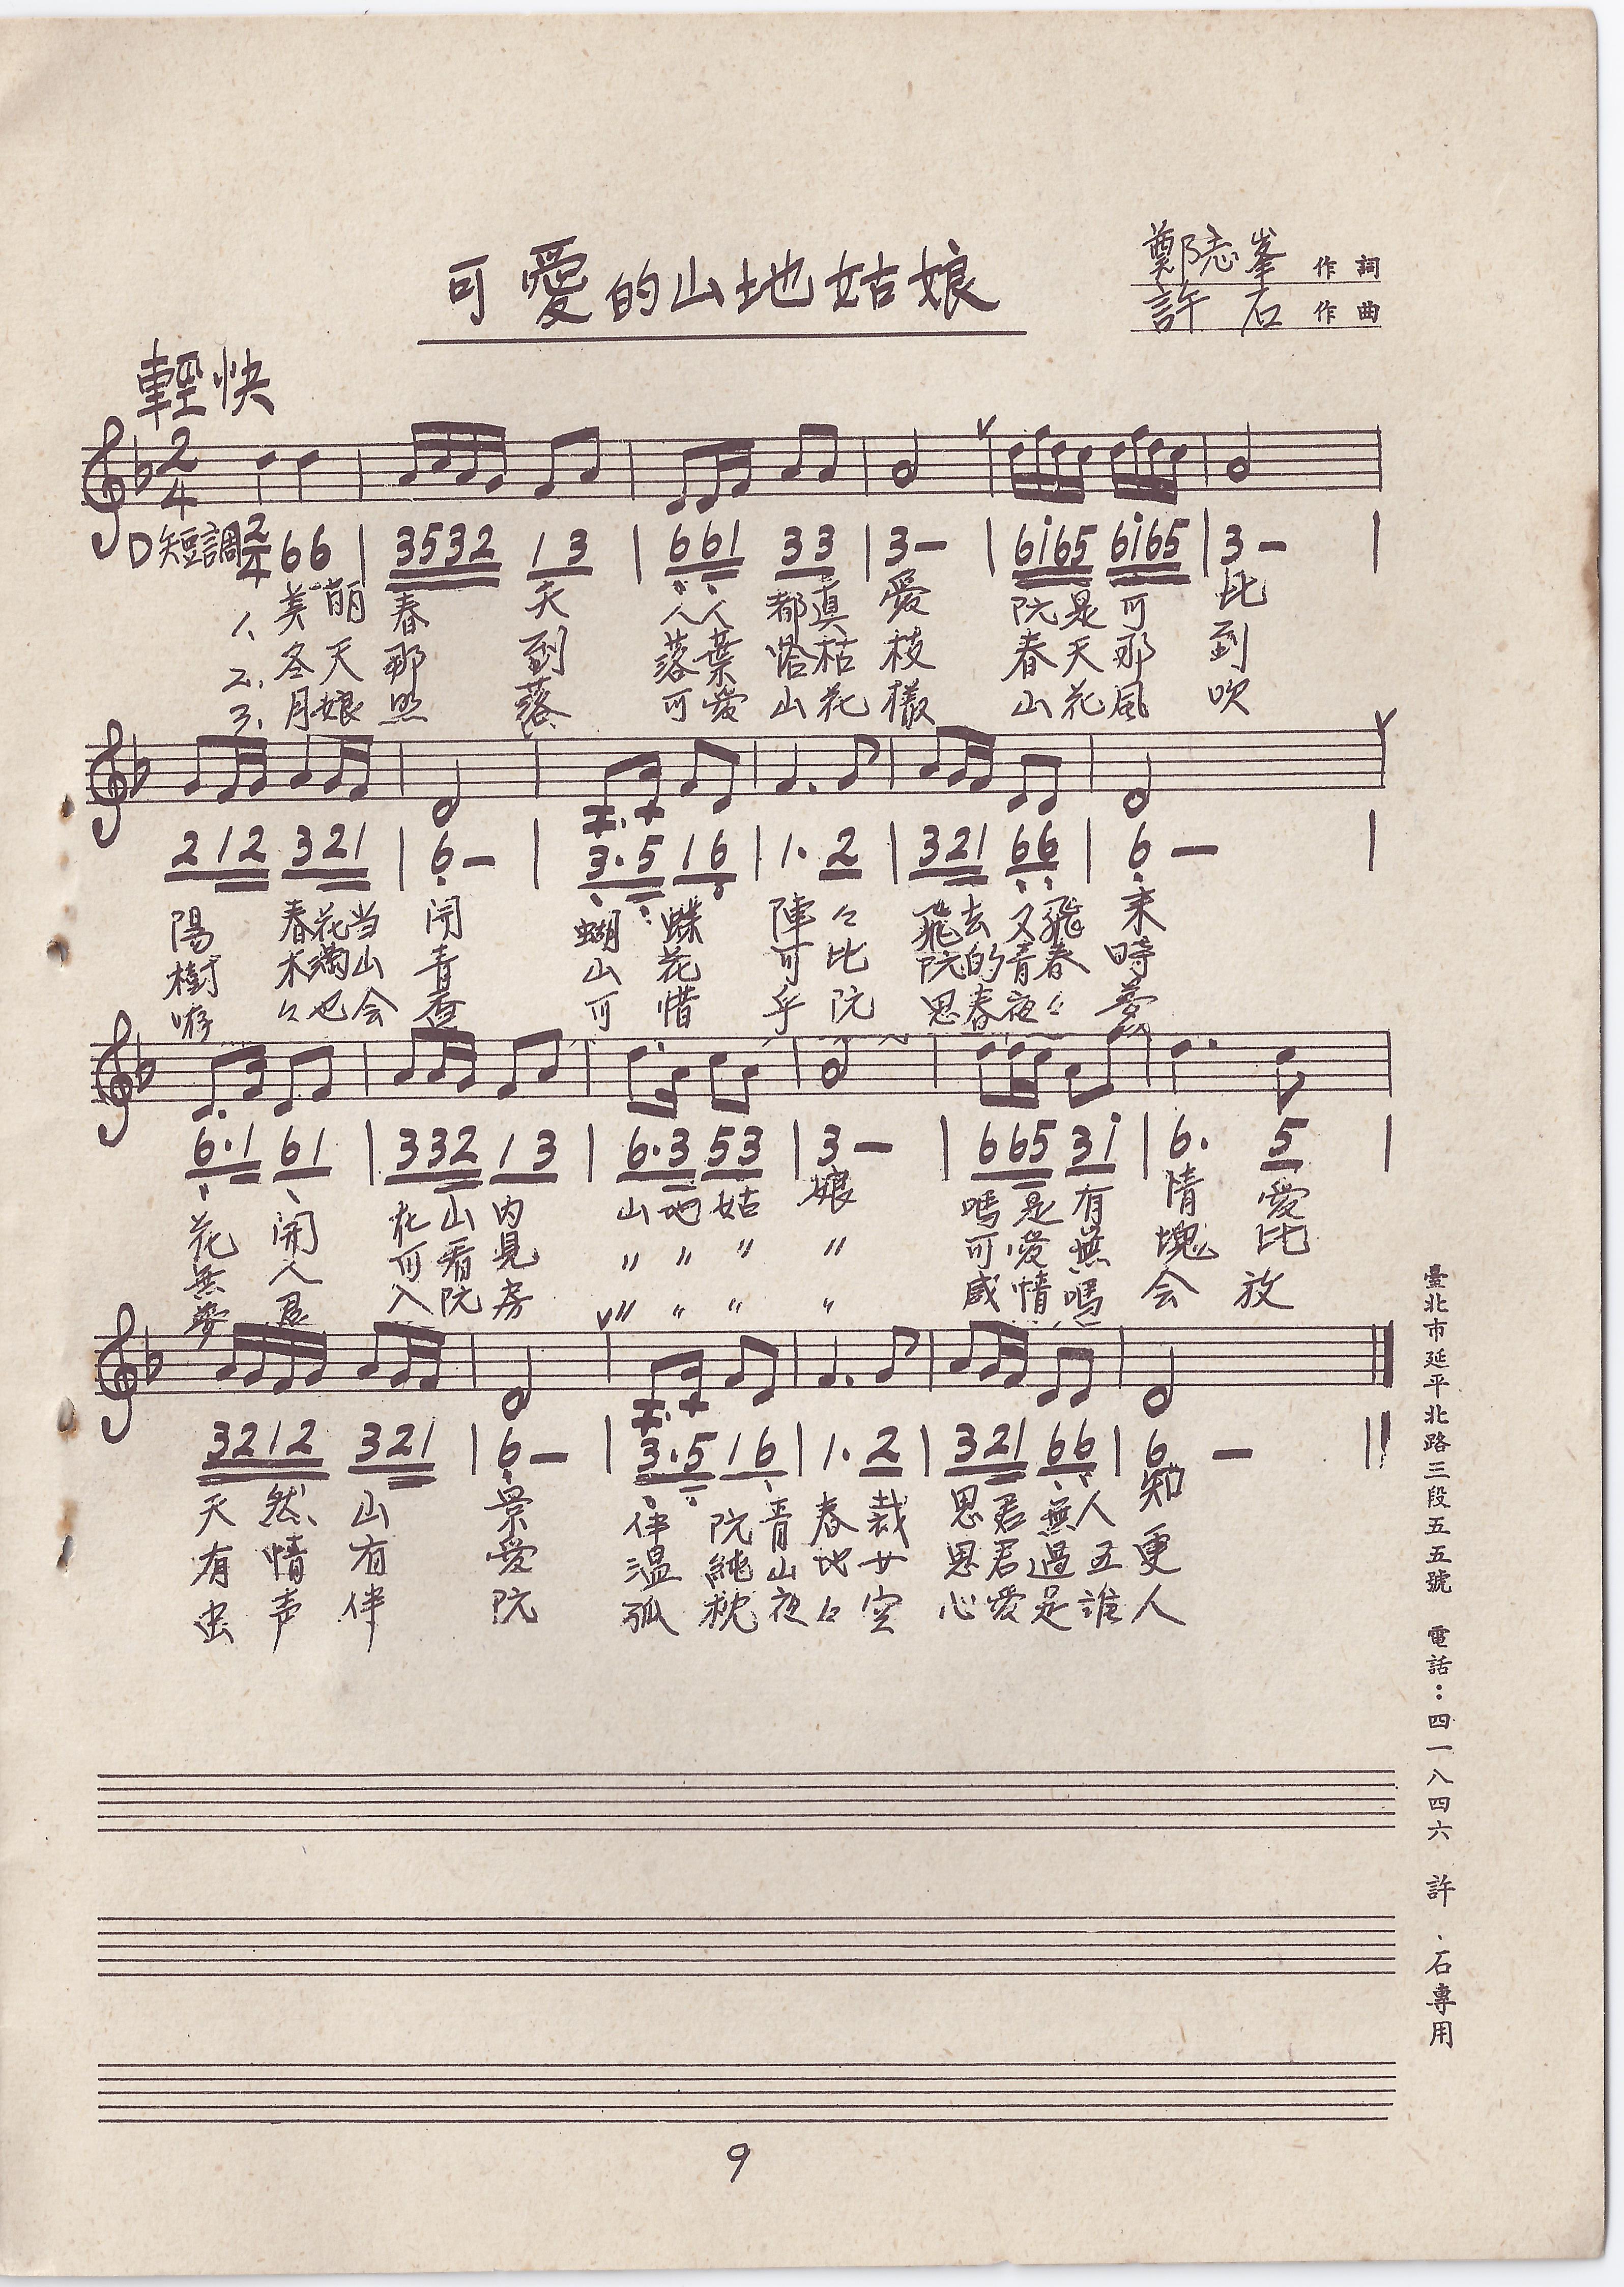 可愛的山地姑娘
鄭志峯 作詞
許 石 作曲
輕快
2/4
D短調 2/4 6 6 | 3532 1 3 | 6 61 3 3 | 3 － | 6i65 6i65 | 3 － |
1. 美萌 春 天 人人 都真 愛 阮是可 比
2. 冬天 那 到 落葉 枯 枝 春天那 到
3. 月娘 照 落 可愛 山花 樣 山花風 吹
2 12 3 21 | 6 － | 3. 5 1 6 | 1. 2 | 3 21 6 6 | 6 － |
陽 春花当 開 蝴蝶 陣々 飛去又飛 來
樹 木滿山 青 山花 可比 阮的青春 時
々也会 香 可惜 乎阮 思春夜々 夢
6. 1 6 1 | 3 32 1 3 | 6. 3 5 3 | 3 － | 6 65 3 i | 6. 5 |
花開 在山内 山地姑 娘 嗎是有 情 愛
無人 可看見 〃 〃 〃 〃 可愛無 塊 比
夢君 入阮房 〃 〃 〃 〃 感情嗎 会 放
3212 3 21 | 6 － | 3. 5 1 6 | 1. 2 | 3 21 6 6 | 6 － ‖
天然山 景 伴 阮青 春裁 思君無人 知
有情有 愛 溫 純山 地女 思君過五 更
虫声伴 阮 孤 枕夜 々空 心愛是誰 人
臺北市延平北路三段五五號 電話：四一八四六 許、石專用
9